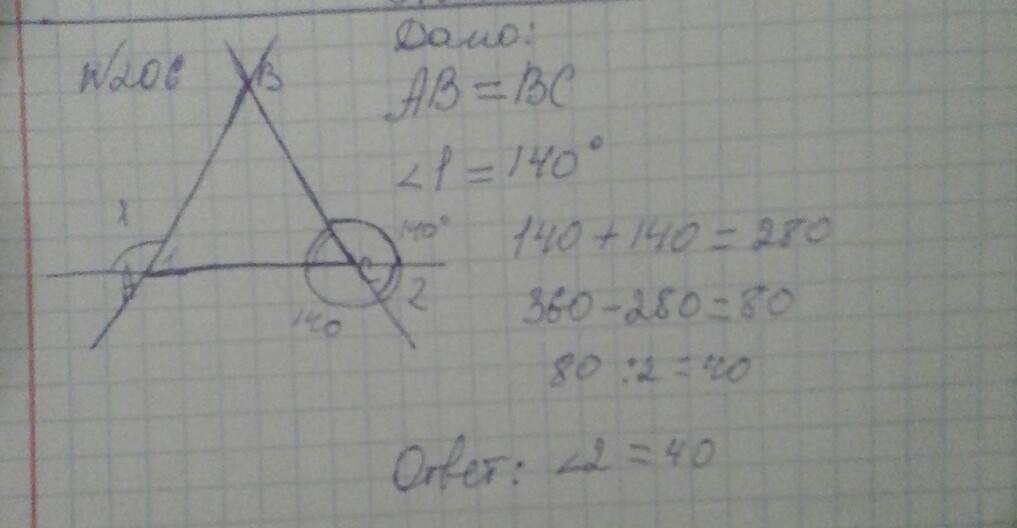 Дано:
№206
B
AB = BC
∠1 = 140°
1
140°
140 + 140 = 280
A
C
2
360 - 280 = 80
140
80 : 2 = 40
Ответ: ∠2 = 40